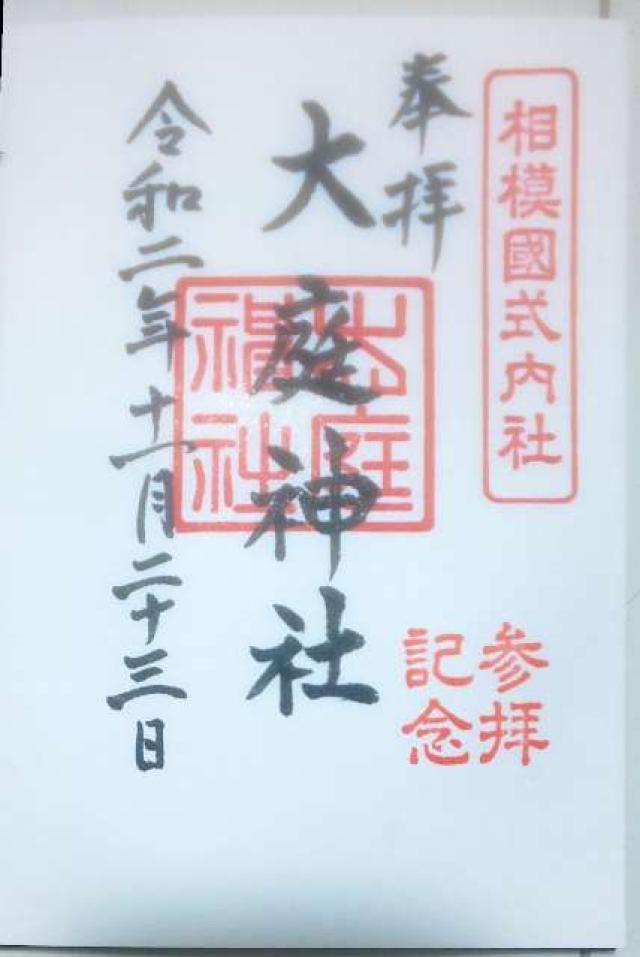 相模國式内社
奉拝
参拝
記念
大庭神社
大庭
神社
令和二年十一月二十三日